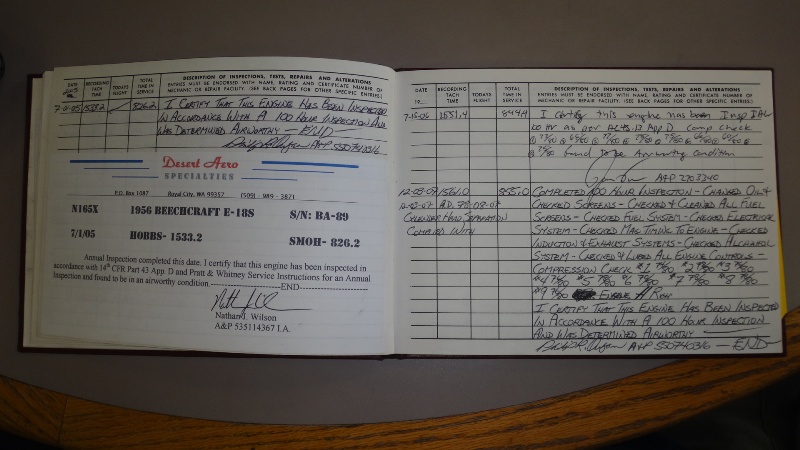 DATE RECORDING TACH TIME TODAYS FLIGHT TOTAL TIME IN SERVICE
DESCRIPTION OF INSPECTIONS, TESTS, REPAIRS AND ALTERATIONS
ENTRIES MUST BE ENDORSED WITH NAME, RATING AND CERTIFICATE NUMBER OF
MECHANIC OR REPAIR FACILITY. (SEE BACK PAGES FOR OTHER SPECIFIC ENTRIES.)
826.2 I CERTIFY THAT THIS ENGINE HAS BEEN INSPECTED
IN ACCORDANCE WITH A 100 HOUR INSPECTION AND
WAS DETERMINED AIRWORTHY — END
A+P 550740316
Desert Aero
SPECIALTIES
P.O. Box 1087 Royal City, WA 99357 (509) - 989 - 3871
N165X 1956 BEECHCRAFT E-18S S/N: BA-89
7/1/05 HOBBS- 1533.2 SMOH- 826.2
Annual Inspection completed this date. I certify that this engine has been inspected in
accordance with 14th CFR Part 43 App. D and Pratt & Whitney Service Instructions for an Annual
Inspection and found to be in an airworthy condition. ----END----
Nathan J. Wilson
A&P 535114367 I.A.
DATE 19 RECORDING TACH TIME TODAYS FLIGHT TOTAL TIME IN SERVICE
DESCRIPTION OF INSPECTIONS, TESTS, REPAIRS AND ALTERATIONS
ENTRIES MUST BE ENDORSED WITH NAME, RATING AND CERTIFICATE NUMBER OF
MECHANIC OR REPAIR FACILITY. (SEE BACK PAGES FOR OTHER SPECIFIC ENTRIES.)
7-15-06 1551.4 844.4 I certify this engine has been Insp IAW
100 HR as per App D Comp check
found to be Airworthy condition
A&P 2703340
1561.0 855.0 COMPLETED 100 HOUR INSPECTION - CHANGED OIL &
A.D. 78-08-07 CHECKED SCREENS - CHECKED & CLEANED ALL FUEL
CYLINDER HEAD SEPARATION SCREENS - CHECKED FUEL SYSTEM - CHECKED ELECTRICAL
COMPLIED WITH SYSTEM - CHECKED MAG TIMING TO ENGINE - CHECKED
INDUCTION & EXHAUST SYSTEMS - CHECKED ALCOHOL
SYSTEM - CHECKED & LUBED ALL ENGINE CONTROLS -
COMPRESSION CHECK #1 #2 #3
#4 #5 #6 #7 #8
#9 ENGINE
I CERTIFY THAT THIS ENGINE HAS BEEN INSPECTED
IN ACCORDANCE WITH A 100 HOUR INSPECTION
AND WAS DETERMINED AIRWORTHY
A+P 550740316 — END